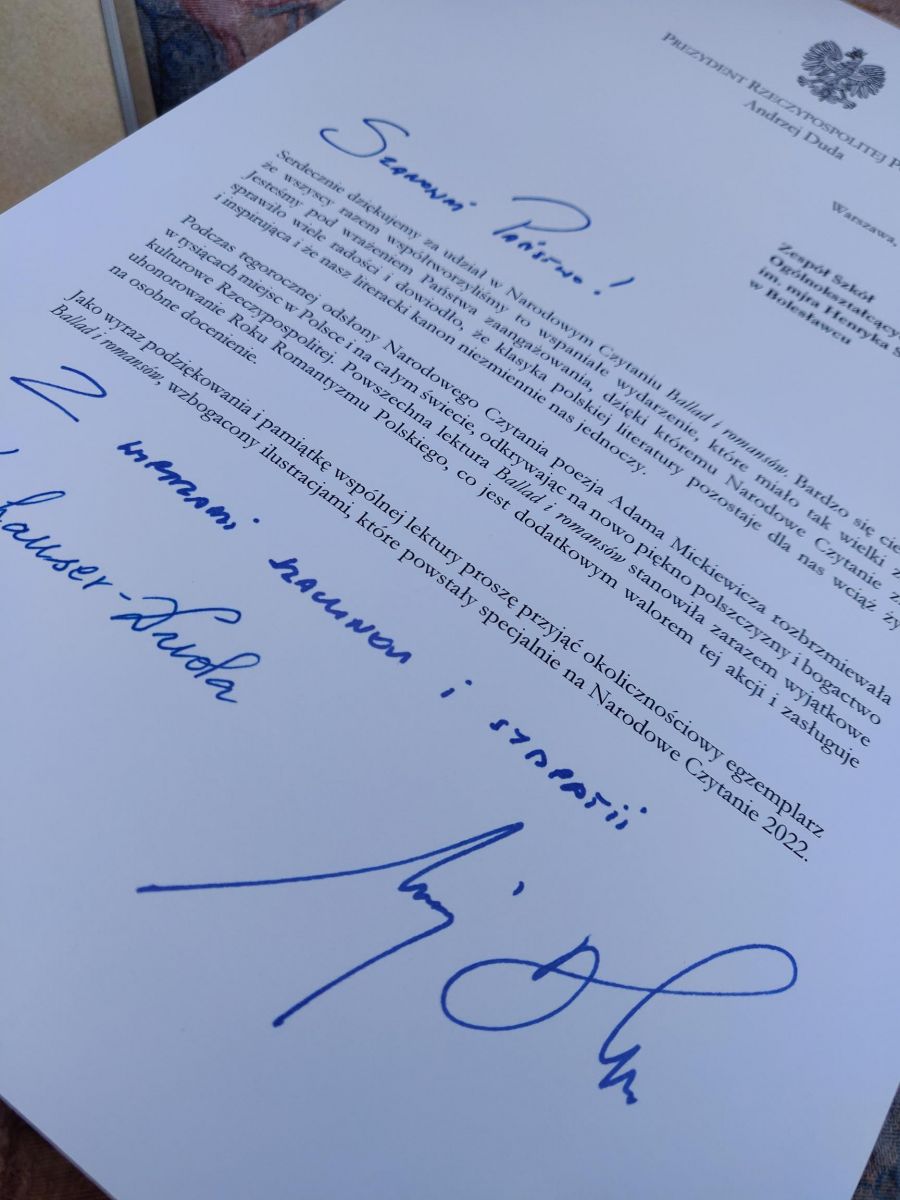 PREZYDENT RZECZYPOSPOLITEJ P
Andrzej Duda
Warszawa,
Zespół Szkół
Ogólnokształcący
im. mjra Henryka S
w Bolesławcu
Szanowni Państwo!
Serdecznie dziękujemy za udział w Narodowym Czytaniu Ballad i romansów. Bardzo się cie
że wszyscy razem współtworzyliśmy to wspaniałe wydarzenie, które miało tak wielki z
Jesteśmy pod wrażeniem Państwa zaangażowania, dzięki któremu Narodowe Czytanie z
sprawiło wiele radości i dowiodło, że klasyka polskiej literatury pozostaje dla nas wciąż ży
i inspirująca i że nasz literacki kanon niezmiennie nas jednoczy.
Podczas tegorocznej odsłony Narodowego Czytania poezja Adama Mickiewicza rozbrzmiewała
w tysiącach miejsc w Polsce i na całym świecie, odkrywając na nowo piękno polszczyzny i bogactwo
kulturowe Rzeczypospolitej. Powszechna lektura Ballad i romansów stanowiła zarazem wyjątkowe
uhonorowanie Roku Romantyzmu Polskiego, co jest dodatkowym walorem tej akcji i zasługuje
na osobne docenienie.
Jako wyraz podziękowania i pamiątkę wspólnej lektury proszę przyjąć okolicznościowy egzemplarz
Ballad i romansów, wzbogacony ilustracjami, które powstały specjalnie na Narodowe Czytanie 2022.
Z wyrazami szacunku i sympatii
hauser-Duda